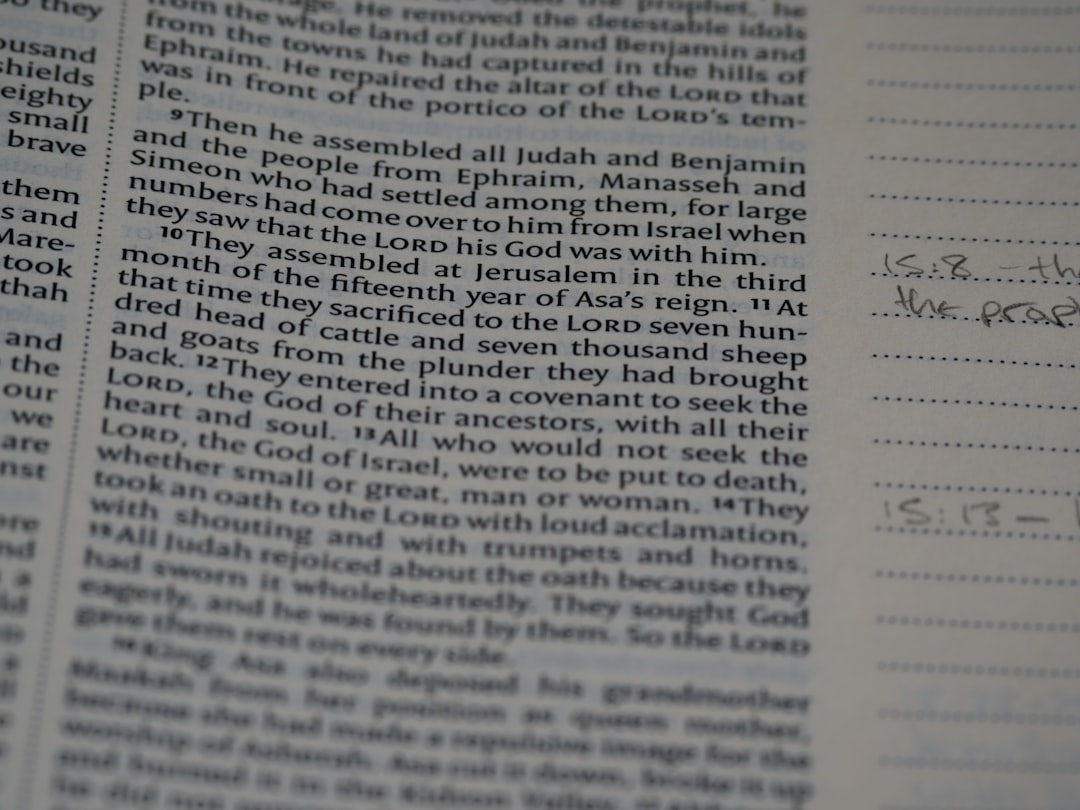 o they
ousand
shields
eighty
small
brave
them
s and
Mare-
took
thah
and
the
our
we
are
nst
ore
nd
a
the prophet, he
He removed the detestable idols
from the whole land of Judah and Benjamin and
from the towns he had captured in the hills of
Ephraim. He repaired the altar of the LORD that
was in front of the portico of the LORD's tem-
ple.
9 Then he assembled all Judah and Benjamin
and the people from Ephraim, Manasseh and
Simeon who had settled among them, for large
numbers had come over to him from Israel when
they saw that the LORD his God was with him.
10 They assembled at Jerusalem in the third
month of the fifteenth year of Asa's reign. 11 At
that time they sacrificed to the LORD seven hun-
dred head of cattle and seven thousand sheep
and goats from the plunder they had brought
back. 12 They entered into a covenant to seek the
LORD, the God of their ancestors, with all their
heart and soul. 13 All who would not seek the
LORD, the God of Israel, were to be put to death,
whether small or great, man or woman. 14 They
took an oath to the LORD with loud acclamation,
with shouting and with trumpets and horns.
15 All Judah rejoiced about the oath because they
had sworn it wholeheartedly. They sought God
eagerly, and he was found by them. So the LORD
gave them rest on every side.
16 King Asa also deposed his grandmother
Maakah from her position as queen mother,
because she had made a repulsive image for the
worship of Asherah. Asa cut it down, broke it up
and burned it in the Kidron Valley.
he did not
15:8 - th
the prop
15:13 -